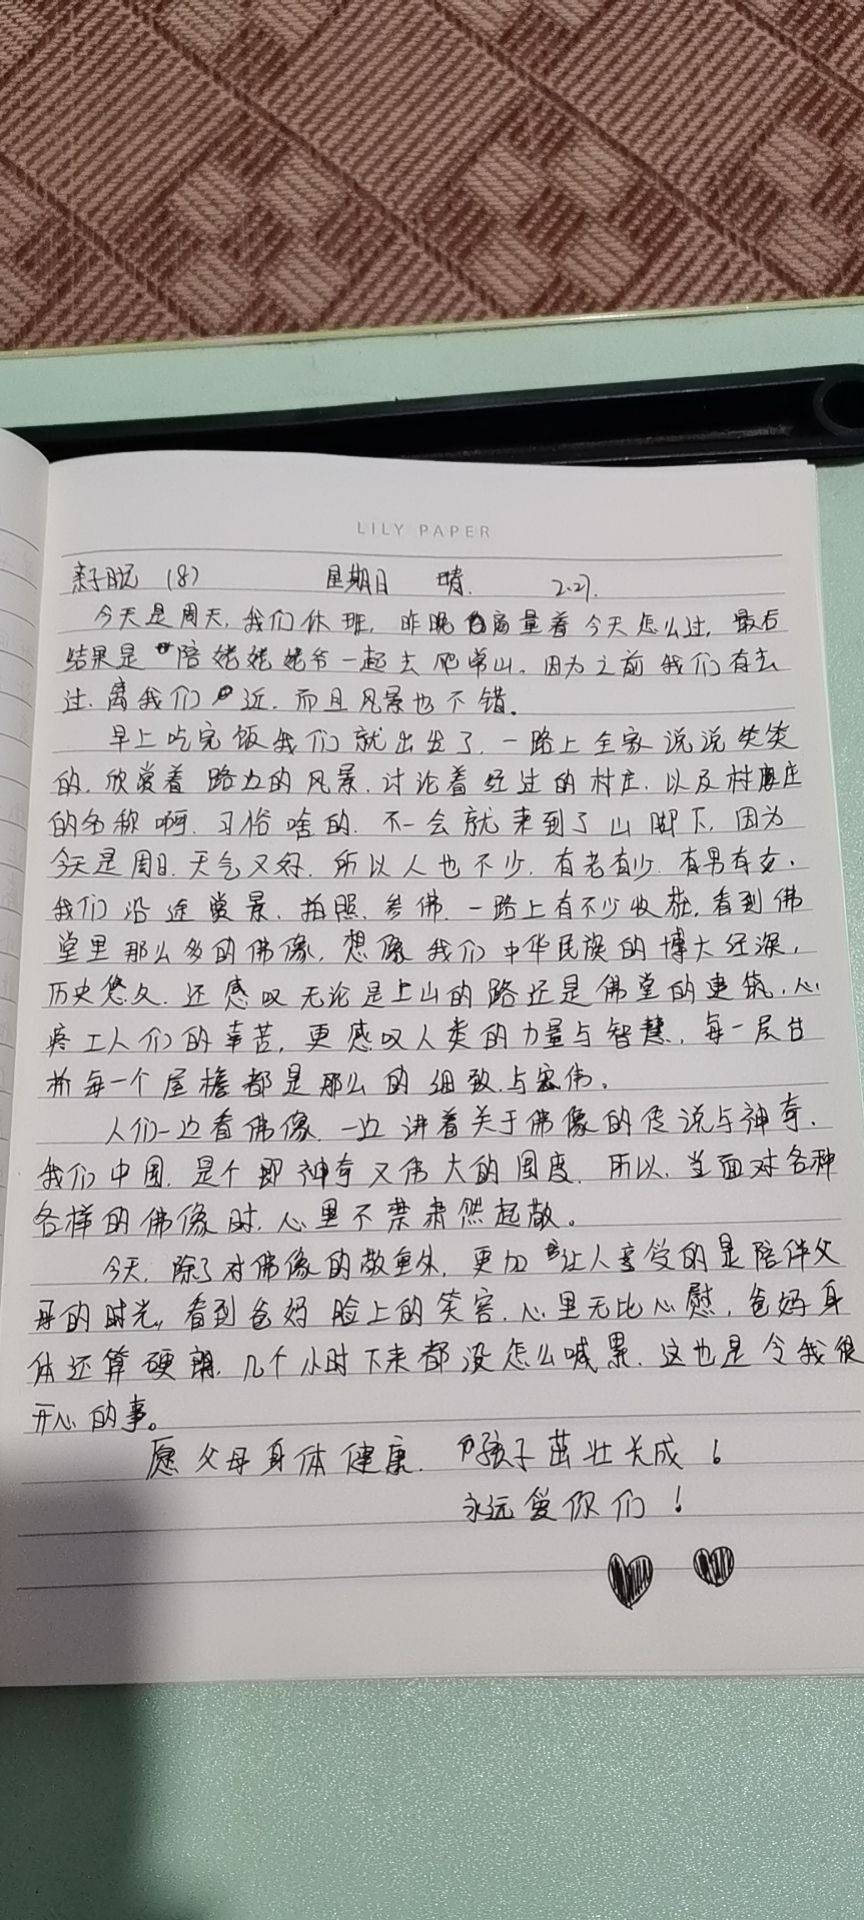 LILY PAPER
亲子日记 (8) 星期日 晴. 2.27.
今天是周天,我们休班,昨晚商量着今天怎么过,最后
结果是陪姥姥姥爷一起去爬山。因为之前我们有去
过.离我们近.而且风景也不错。
早上吃完饭我们就出发了.一路上全家说说笑笑
的.欣赏着路边的风景.讨论着经过的村庄.以及村庄
的名称啊.习俗啥的.不一会就来到了山脚下.因为
今天是周日.天气又好.所以人也不少.有老有少.有男有女.
我们沿途赏景、拍照、参佛.一路上有不少收获.看到佛
堂里那么多的佛像,想像我们中华民族的博大经深,
历史悠久.还感叹无论是上山的路还是佛堂的建筑.心
疼工人们的辛苦,更感叹人类的力量与智慧,每一层台
阶每一个屋檐都是那么的细致与宏伟。
人们一边看佛像.一边讲着关于佛像的传说与神奇.
我们中国.是个即神奇又伟大的国度.所以.当面对各种
各样的佛像时.心里不禁肃然起敬。
今天.除了对佛像的敬重外,更加让人享受的是陪伴父
母的时光,看到爸妈脸上的笑容.心里无比心慰,爸妈身
体还算硬朗.几个小时下来都没怎么喊累.这也是令我很
开心的事。
愿父母身体健康.孩子茁壮长成!
永远爱你们!